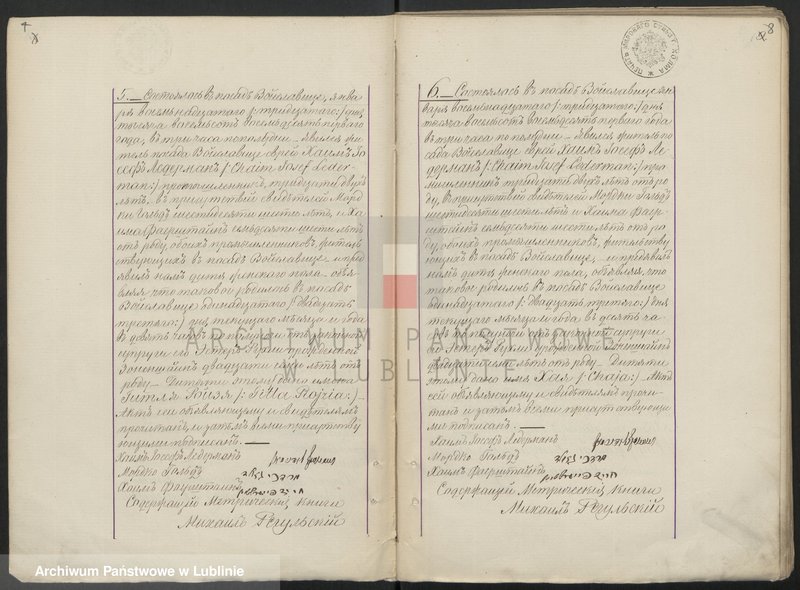 4
8
5. Состоялась въ посадѣ Войславице, янва-
ря восемьнадцатаго /: тридцатаго :/ дня
тысяча восемьсотъ восемьдесятъ перваго
года, въ три часа пополудни. Явился жи-
тель посада Войславице еврей Хаимъ Іо-
сефъ Ледерманъ /: Chaim Josef Leder-
man :/ промышленникъ, тридцати двухъ
лѣтъ, въ присутствіи свидѣтелей Морд-
ки Гольдъ шестидесяти шести лѣтъ, и Ха-
има Фаерштайнъ семьдесяти шести лѣтъ
отъ роду, обоихъ промышленниковъ, житель-
ствующихъ въ посадѣ Войславице и пред-
явилъ намъ дитя женскаго пола, объя-
вляя что таковое родилось въ посадѣ
Войславице одинадцатаго /: двадцать
третяго :/ дня текущаго мѣсяца и года
въ девять часовъ
супруги его Эстеръ Брухи урожденной
двадцати семи лѣтъ отъ
роду. Дитяти этому дано имена
Гитля Хизя
Актъ сей объявляющему и свидѣтелямъ
прочитанъ, и затѣмъ всѣми присутству-
ющими подписанъ.
Хаимъ Іосефъ Ледерманъ
Мордко Гольдъ מרדכי גאלד
Хаимъ Фаерштайнъ
Содержащій Метрическія книги
Михаилъ Регульскій
6. Состоялась въ посадѣ Войславице ян-
варя восемьнадцатаго /: тридцатаго :/ дня
тысяча восемьсотъ восемьдесятъ перваго года
въ три часа по полудни. Явился житель по-
сада Войславице еврей Хаимъ Іосефъ Ле-
дерманъ /: Chaim Josef Lederman :/ про-
мышленникъ тридцати двухъ лѣтъ отъ ро-
ду, въ присутствіи свидѣтелей Мордки Гольдъ
шестидесяти шести лѣтъ и Хаима Фаер-
штайнъ семьдесяти шести лѣтъ отъ ро-
ду, обоихъ промышленниковъ, жительству-
ющихъ въ посадѣ Войславице, и предъявилъ
намъ дитя женскаго пола, объявляя, что
таковое родилось въ посадѣ Войславице
одинадцатаго /: двадцать третяго :/ дня
текущаго мѣсяца и года въ десять ча-
совъ по полудни отъ законной супруги
его Эстеръ Брухи урожденной
двадцати семи лѣтъ отъ роду. Дитяти
этому дано имя Хая /: Chaja :/. Актъ
сей объявляющему и свидѣтелямъ прочи-
танъ и затѣмъ всѣми присутствующи-
ми подписанъ.
Хаимъ Іосефъ Ледерманъ
Мордко Гольдъ מרדכי גאלד
Хаимъ Фаерштайнъ
Содержащій Метрическія книги
Михаилъ Регульскій
ARCHIWUM PAŃSTWOWE
W LUBLINIE
Archiwum Państwowe w Lublinie